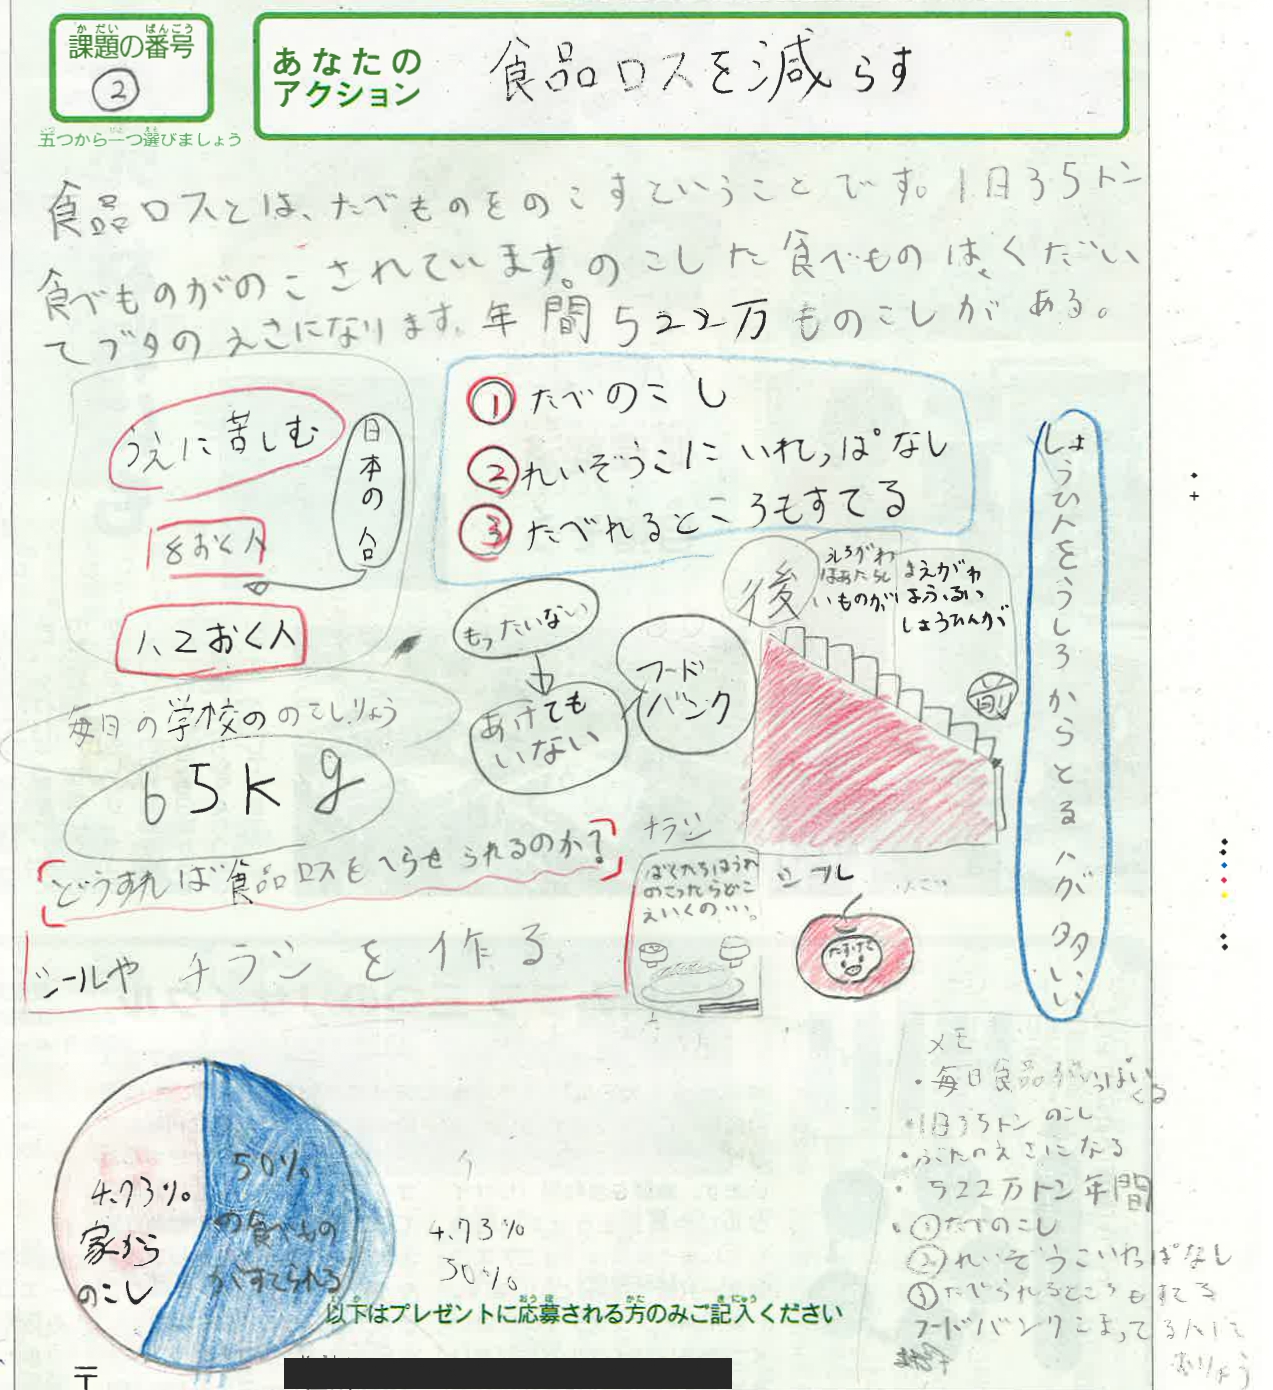 課題の番号
②
五つから一つ選びましょう
あなたの
アクション
食品ロスを減らす
食品ロスとは、たべものをのこすということです。1日35トン
食べものがのこされています。のこした食べものは、くだい
てブタのえさになります。年間522万ものこしがある。
うえに苦しむ
日本の人口
8おく人
1、2おく人
①たべのこし
②れいぞうこにいれっぱなし
③たべれるところもすてる
しょうひんをうしろからとる人が多い
もったいない
あげても
いない
フード
バンク
後
うしろがわ
はあたらし
いものが
まえがわ
はふるい
しょうひんが
前
毎日の学校ののこしりょう
65kg
どうすれば食品ロスをへらせられるのか?
シールや チラシを作る
チラシ
ぼくたちはうれ
のこったらどこ
えいくの…。
シール
たすけて
4.73%
家から
のこし
50%
の食べもの
がすてられる
4.73%
50%
メモ
・毎日食品がいっぱいくる
・1日35トンのこし
・ぶたのえさになる
・522万トン年間
・①たべのこし
②れいぞうこいれっぱなし
③たべられるところもすてる
フードバンクこまってる人に
以下はプレゼントに応募される方のみご記入ください
〒